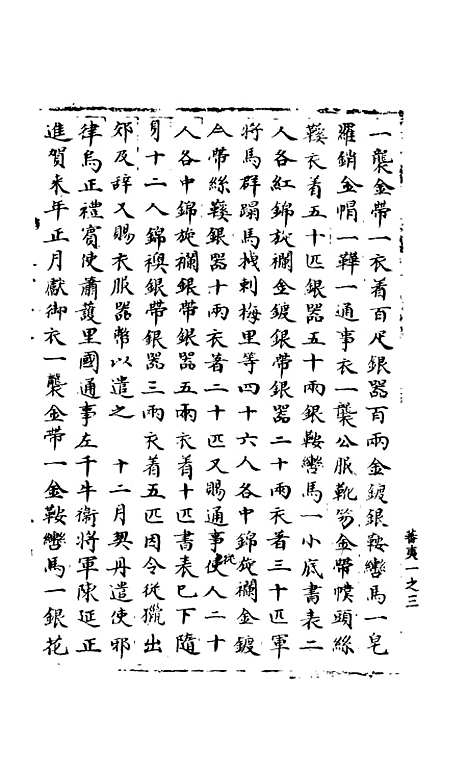 一襲金帶一衣着百疋銀器百兩金鍍銀鞍轡馬一皂
羅銷金帽一鞾一通事衣一襲公服靴笏金帶幞頭絲
鞵衣着五十匹銀器五十兩銀鞍轡馬一小底書表二
人各紅錦旋襴金鍍銀帶銀器二十兩衣着三十匹軍
將馬群蹋馬栈剌梅里等四十六人各中錦旋襴金鍍
帶絲鞵銀器十兩衣着二十匹又賜通事從使人二十
人各中錦旋襴銀帶銀器五兩衣着十匹書表已下隨
十二人錦襖銀帶銀器三兩衣着五匹因令從獵出
郊及辞又賜衣服器幣以遣之 十二月契丹遣使邪
律烏正禮賓使蕭護里國通事左千牛衛將軍陳延正
進賀來年正月獻御衣一襲金帶一金鞍轡馬一銀花
蕃夷一之三